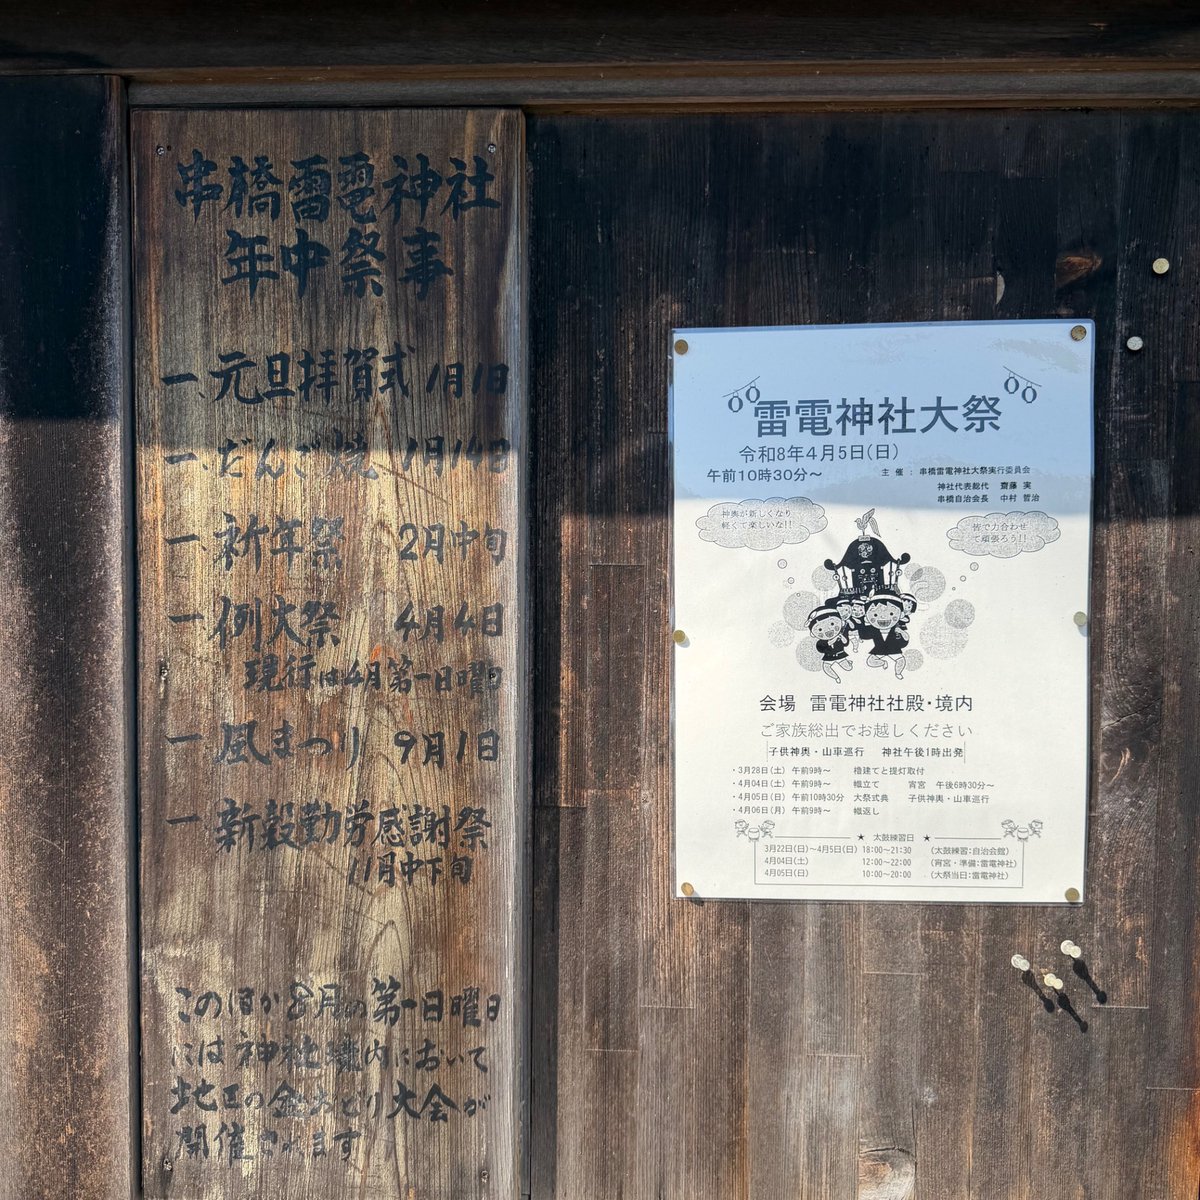 串橋雷電神社
年中祭事
一、元旦拝賀式 1月1日
一、だんご焼 1月14日
一、祈年祭 2月中旬
一、例大祭 4月4日
現行は4月第一日曜日
一、風まつり 9月1日
一、新穀勤労感謝祭
11月中下旬
このほか8月の第一日曜日
には神社境内において
地区の盆おどり大会が
開催されます
雷電神社大祭
令和8年4月5日(日)
午前10時30分～
主催：串橋雷電神社大祭実行委員会
神社代表総代 齋藤 実
串橋自治会長 中村 哲治
神輿が新しくなり
軽くて楽しいな!!
皆で力合わせ
て頑張ろう!!
会場 雷電神社社殿・境内
ご家族総出でお越しください
子供神輿・山車巡行 神社午後1時出発
・3月28日(土) 午前9時～ 櫓建てと提灯取付
・4月04日(土) 午前9時～ 幟立て 宵宮 午後6時30分～
・4月05日(日) 午前10時30分 大祭式典 子供神輿・山車巡行
・4月06日(月) 午前9時～ 幟返し
★ 太鼓練習日 ★
3月22日(日)～4月5日(日) 18:00～21:30 (太鼓練習:自治会館)
4月04日(土) 12:00～22:00 (宵宮・準備:雷電神社)
4月05日(日) 10:00～20:00 (大祭当日:雷電神社)